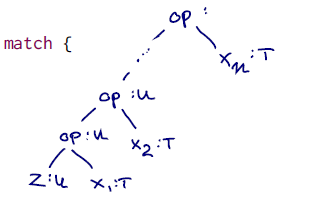 op :
match {
...
x_n : T
op : u
op : u
x_2 : T
z : u x_1 : T